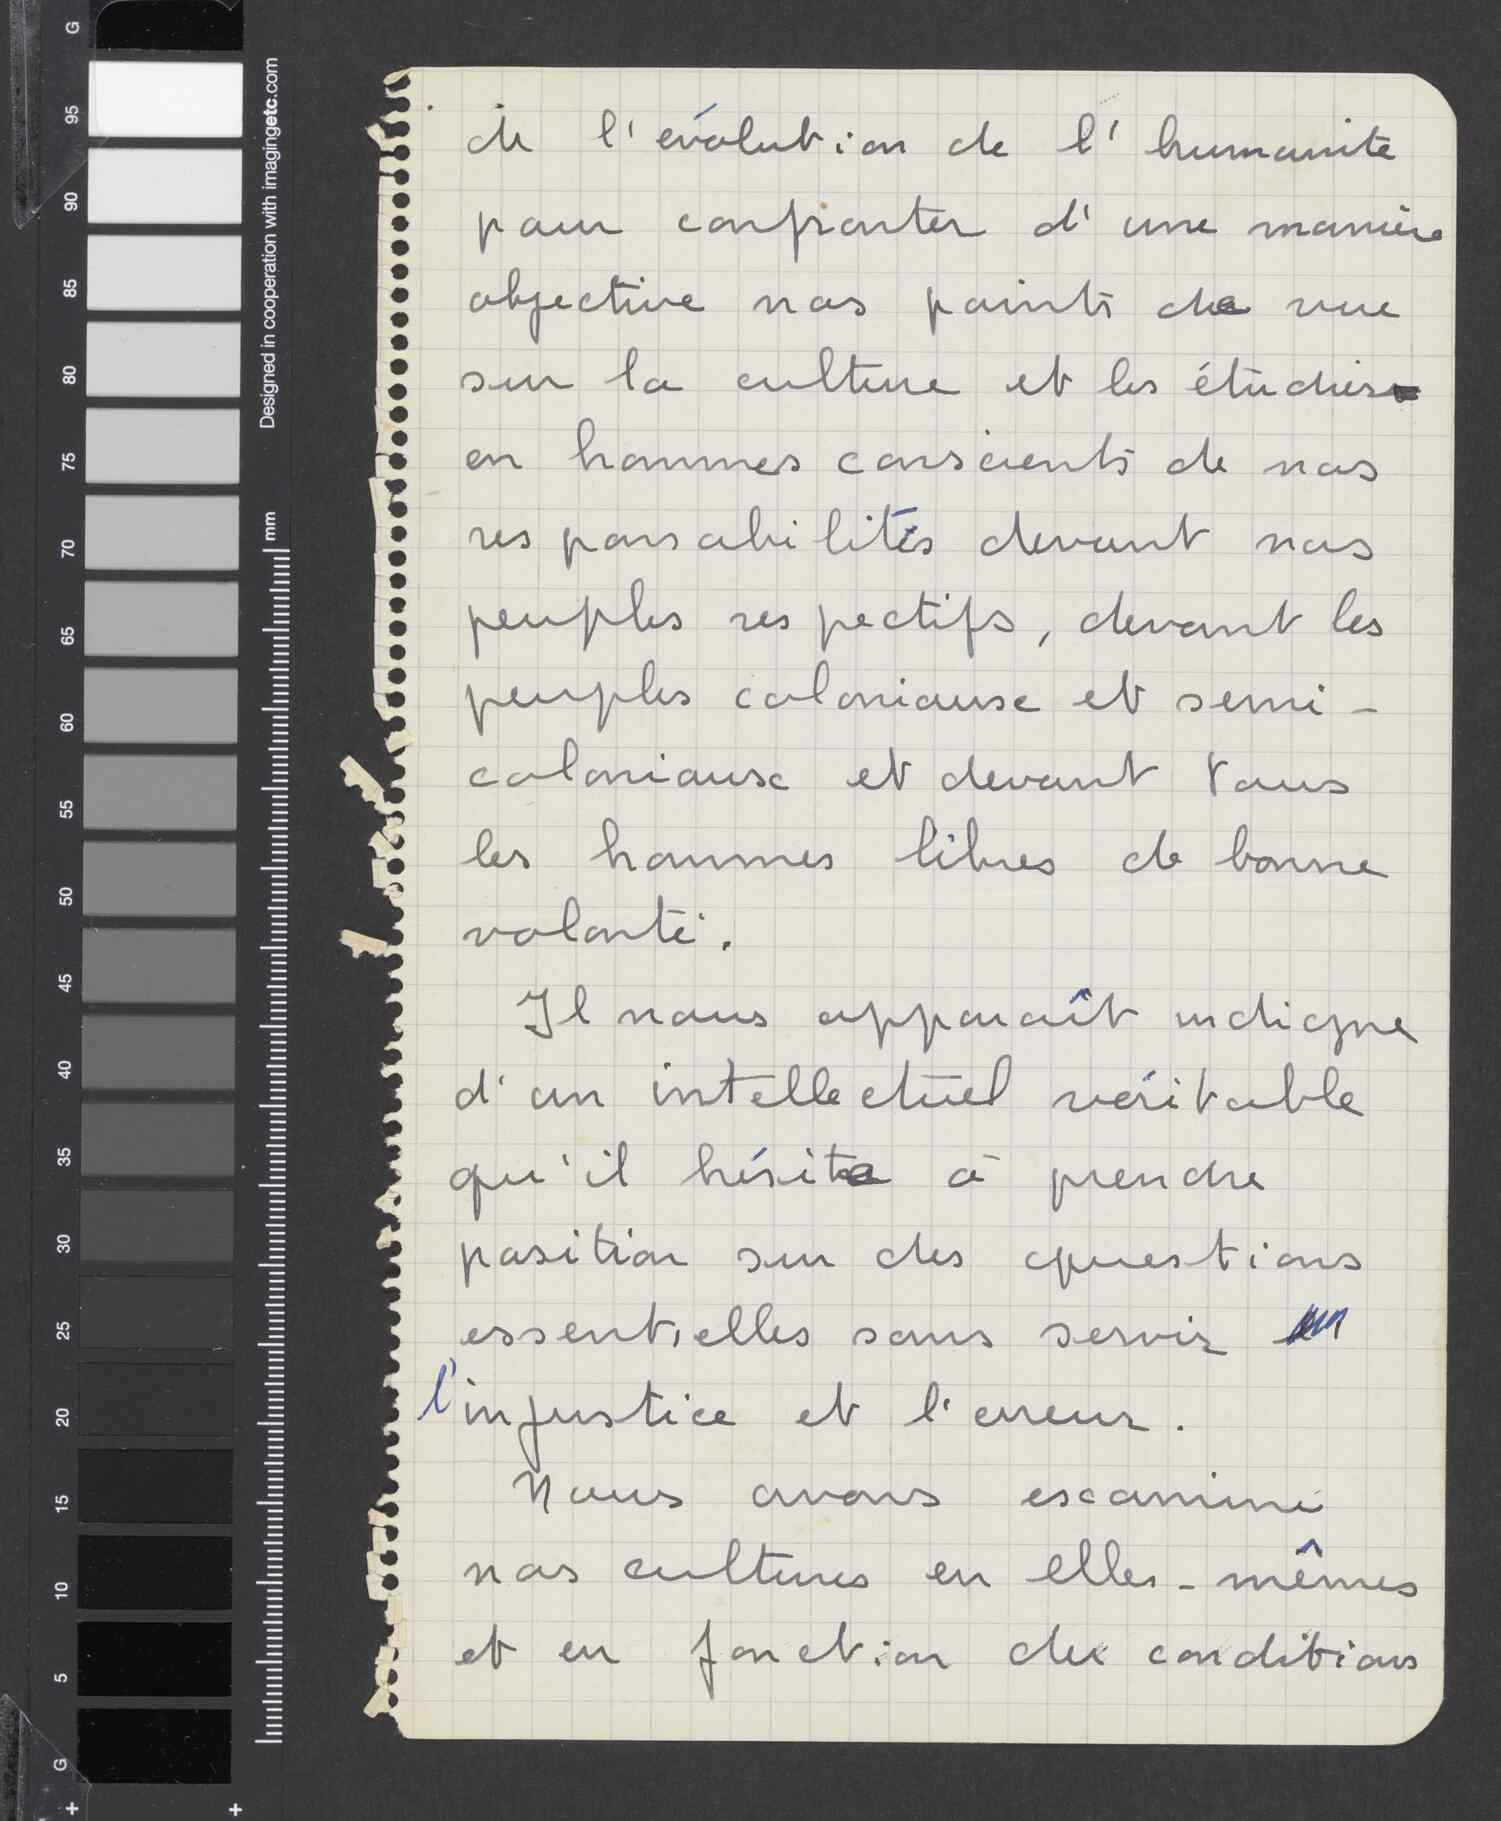 de l'évolution de l'humanité
pour confronter d'une manière
objective nos points de vue
sur la culture et les étudier
en hommes conscients de nos
responsabilités devant nos
peuples respectifs, devant les
peuples coloniaux et semi-
coloniaux et devant tous
les hommes libres de bonne
volonté.
Il nous apparaît indigne
d'un intellectuel véritable
qu'il hésite à prendre
position sur des questions
essentielles sans servir
l'injustice et l'erreur.
Nous avons examiné
nos cultures en elles-mêmes
et en fonction des conditions
G
95
90
85
80
75
70
65
60
55
50
45
40
35
30
25
20
15
10
5
G
Designed in cooperation with imagingetc.com
mm